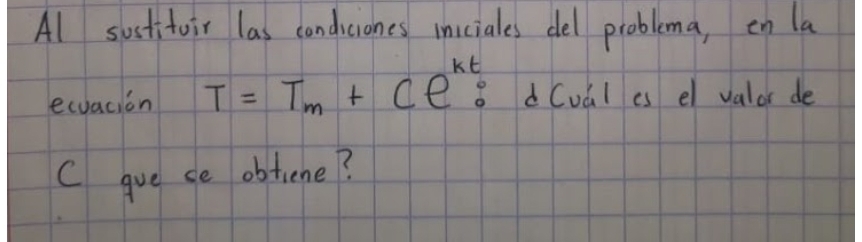 Al sustituir las condiciones iniciales del problema, en la
ecuación T = Tm + Ce^kt : ¿Cuál es el valor de
C que se obtiene?